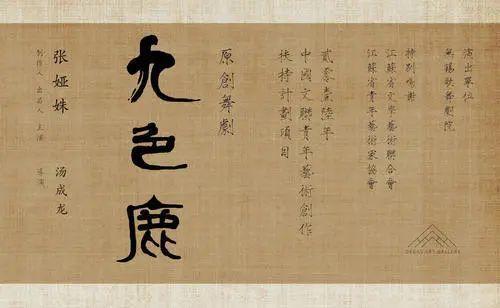 演出單位
無錫歌舞劇院
特別鳴謝
江蘇省文學藝術聯合會
江蘇省青年藝術家協會
貳零壹陸年
中國文聯青年藝術創作
扶持計劃項目
原創舞劇
九色鹿
张娅姝
制作人 出品人 主演
汤成龙
导演
ART GALLERY